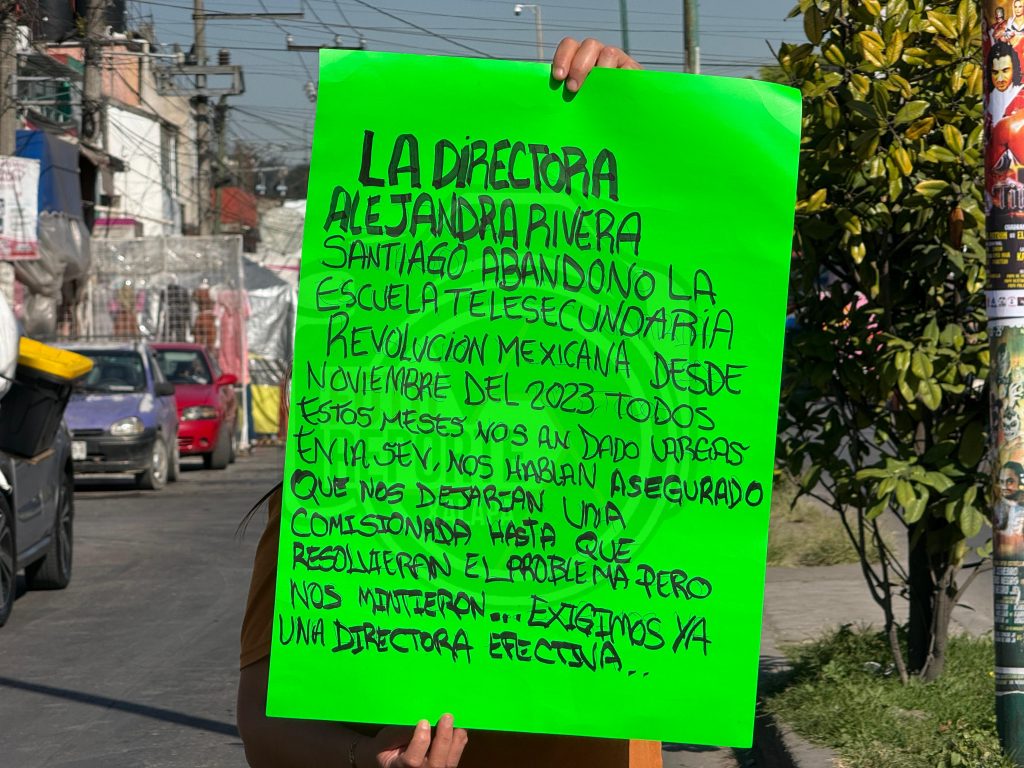 LA DIRECTORA
ALEJANDRA RIVERA
SANTIAGO ABANDONO LA
ESCUELA TELESECUNDARIA
REVOLUCION MEXICANA DESDE
NOVIEMBRE DEL 2023 TODOS
ESTOS MESES NOS AN DADO LARGAS
EN LA SEV, NOS HABIAN ASEGURADO
QUE NOS DEJARIAN UNA
COMISIONADA HASTA QUE
RESOLVIERAN EL PROBLEMA PERO
NOS MINTIERON... EXIGIMOS YA
UNA DIRECTORA EFECTIVA..